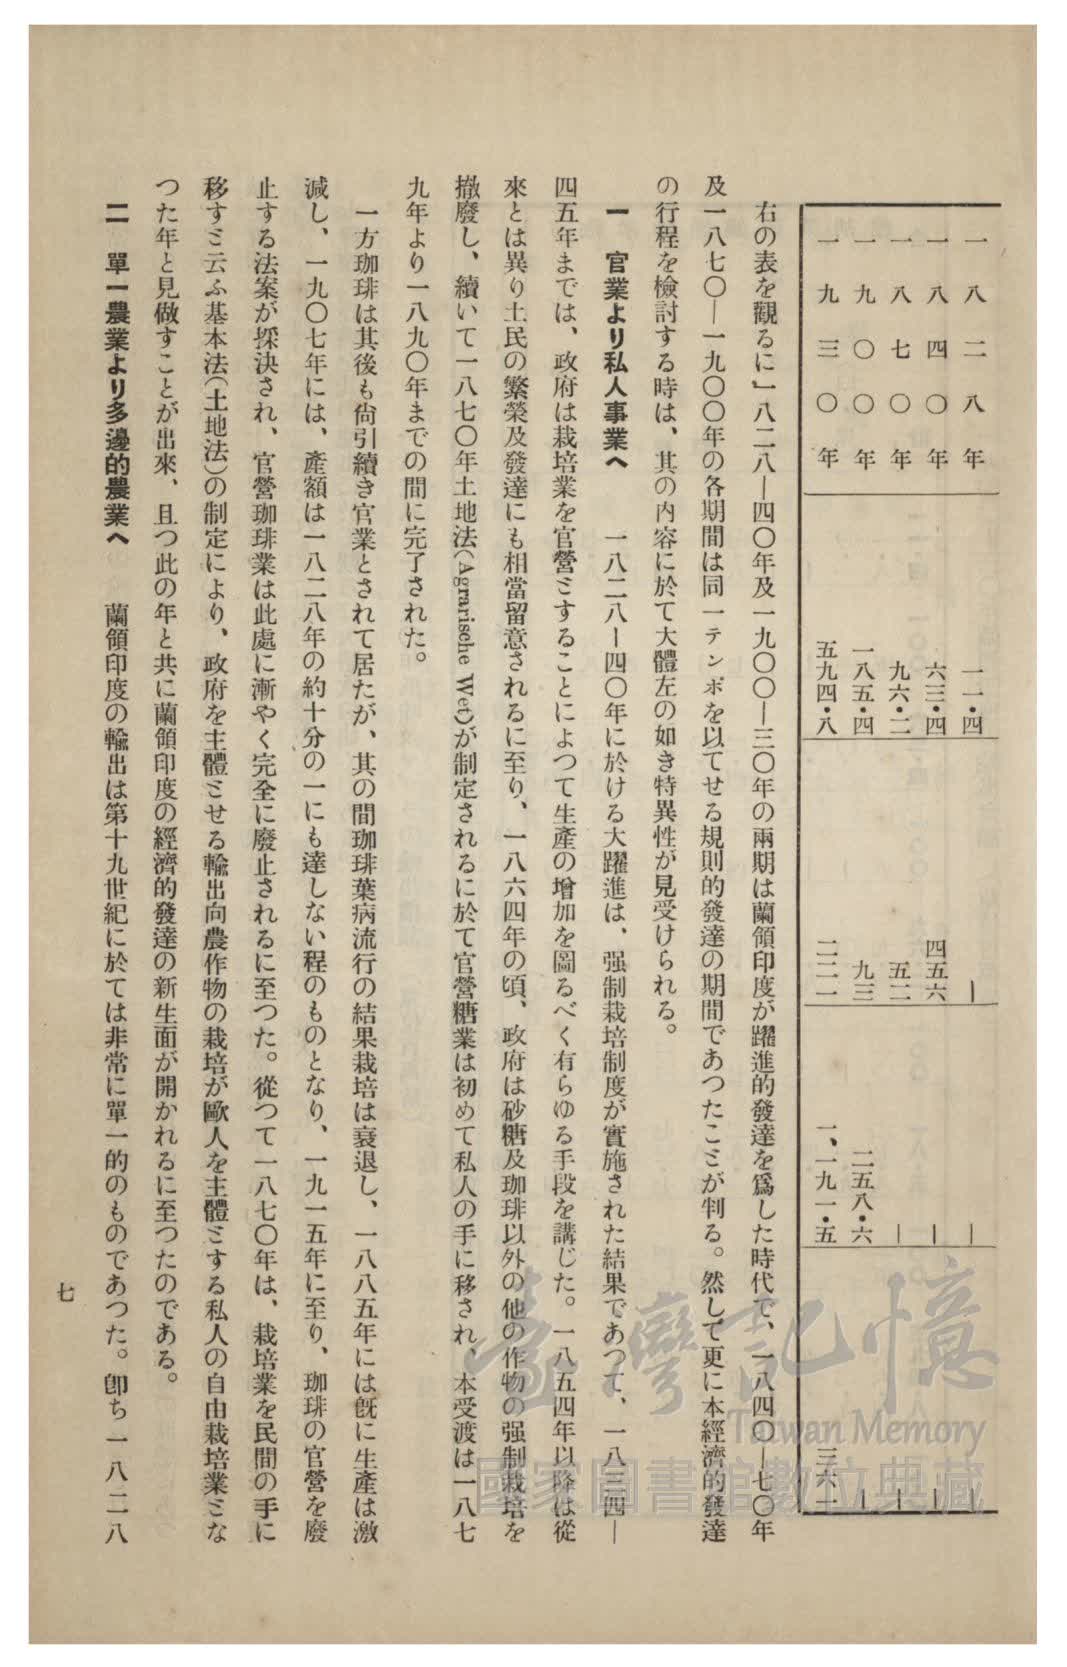 一八二八年 一一・四 ― ― ―
一八四〇年 六三・四 四五六 ― ―
一八七〇年 九六・二 五二 ― ―
一九〇〇年 一八五・四 九三 二五八・六 ―
一九三〇年 五九四・八 二二一 一、一九一・五 三六一
右の表を觀るに」一八二八―四〇年及一九〇〇―三〇年の兩期は蘭領印度が躍進的發達を爲した時代で、一八四〇―七〇年
及一八七〇―一九〇〇年の各期間は同一テンポを以てせる規則的發達の期間であつたことが判る。然して更に本經濟的發達
の行程を檢討する時は、其の内容に於て大體左の如き特異性が見受けられる。
一 官業より私人事業へ 一八二八―四〇年に於ける大躍進は、强制栽培制度が實施された結果であつて、一八三四―
四五年までは、政府は栽培業を官營とすることによつて生產の增加を圖るべく有らゆる手段を講じた。一八五四年以降は從
來とは異り土民の繁榮及發達にも相當留意されるに至り、一八六四年の頃、政府は砂糖及珈琲以外の他の作物の强制栽培を
撤廢し、續いて一八七〇年土地法(Agrarische Wet)が制定されるに於て官營糖業は初めて私人の手に移され、本受渡は一八七
九年より一八九〇年までの間に完了された。
一方珈琲は其後も尙引續き官業とされて居たが、其の間珈琲葉病流行の結果栽培は衰退し、一八八五年には既に生產は激
減し、一九〇七年には、產額は一八二八年の約十分の一にも達しない程のものとなり、一九一五年に至り、珈琲の官營を廢
止する法案が採決され、官營珈琲業は此處に漸やく完全に廢止されるに至つた。從つて一八七〇年は、栽培業を民間の手に
移すと云ふ基本法(土地法)の制定により、政府を主體とせる輸出向農作物の栽培が歐人を主體とする私人の自由栽培業とな
つた年と見做すことが出來、且つ此の年と共に蘭領印度の經濟的發達の新生面が開かれるに至つたのである。
二 單一農業より多邊的農業へ 蘭領印度の輸出は第十九世紀に於ては非常に單一的のものであつた。卽ち一八二八
七
臺灣記憶
Taiwan Memory
國家圖書館數位典藏